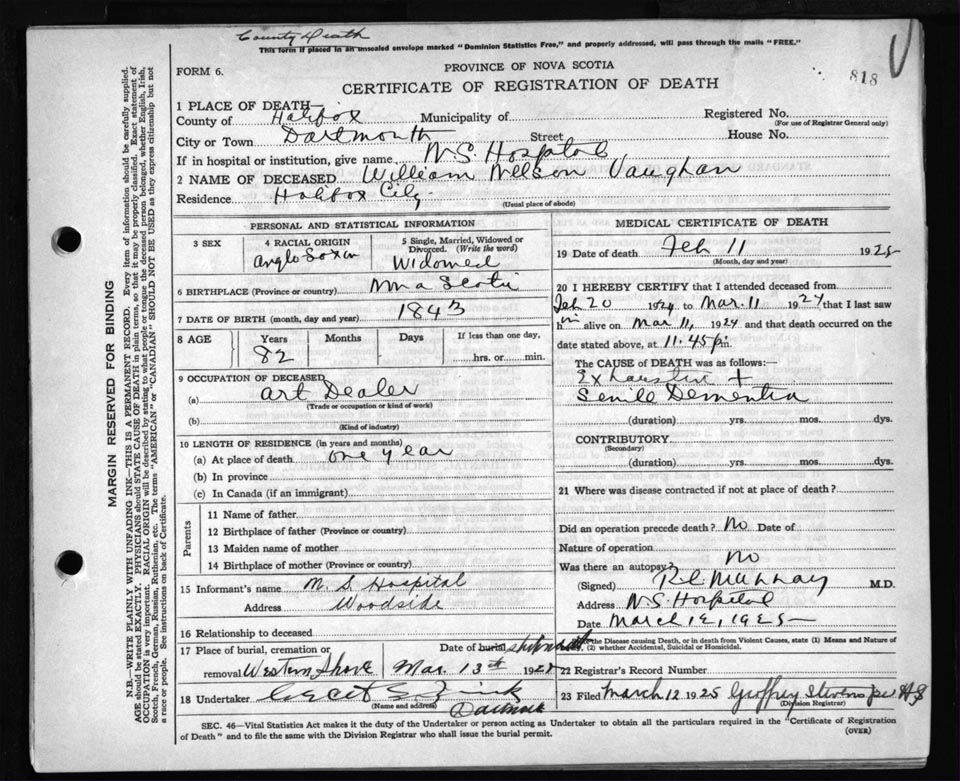 County Death
This form if placed in an unsealed envelope marked "Dominion Statistics Free," and properly addressed, will pass through the mails "FREE."
FORM 6.
PROVINCE OF NOVA SCOTIA
818
CERTIFICATE OF REGISTRATION OF DEATH
1 PLACE OF DEATH—
County of Halifax Municipality of Registered No.
(For use of Registrar General only)
City or Town Dartmouth Street House No.
If in hospital or institution, give name N.S. Hospital
2 NAME OF DECEASED William Nelson Vaughan
Residence Halifax City
(Usual place of abode)
MARGIN RESERVED FOR BINDING
N.B.—WRITE PLAINLY WITH UNFADING INK—THIS IS A PERMANENT RECORD. Every item of information should be carefully supplied.
AGE should be stated EXACTLY. PHYSICIANS should STATE CAUSE OF DEATH in plain terms, so that it may be properly classified. Exact statement of
OCCUPATION is very important. RACIAL ORIGIN will be described by stating to what people or tongue the deceased person belonged, whether English, Irish,
Scotch, French, German, Russian, Ruthenian, etc. The terms "AMERICAN" or "CANADIAN" SHOULD NOT BE USED as they express citizenship but not
a race or people. See instructions on back of Certificate.
PERSONAL AND STATISTICAL INFORMATION
3 SEX
4 RACIAL ORIGIN
Anglo Saxon
5 Single, Married, Widowed or
Divorced. (Write the word)
Widowed
6 BIRTHPLACE (Province or country) Scotia
7 DATE OF BIRTH (month, day and year) 1843
8 AGE
Years Months Days
82
If less than one day,
hrs. or min.
9 OCCUPATION OF DECEASED
(a) Art Dealer
(Trade or occupation or kind of work)
(b)
(Kind of industry)
10 LENGTH OF RESIDENCE (in years and months)
(a) At place of death one year
(b) In province
(c) In Canada (if an immigrant)
Parents
11 Name of father
12 Birthplace of father (Province or country)
13 Maiden name of mother
14 Birthplace of mother (Province or country)
15 Informant's name N.S. Hospital
Address Woodside
16 Relationship to deceased
17 Place of burial, cremation or Date of burial
removal Western Shore Mar. 13th 1925
18 Undertaker
(Name and address)
MEDICAL CERTIFICATE OF DEATH
19 Date of death Feb 11 1925
(Month, day and year)
20 I HEREBY CERTIFY that I attended deceased from
Feb 20 1924 to Mar. 11 1924 that I last saw
him alive on Mar 11, 1924 and that death occurred on
date stated above, at 11.45 p.m.
The CAUSE OF DEATH was as follows:—
Exhaustion +
Senile Dementia
(duration) yrs. mos. dys.
CONTRIBUTORY
(Secondary)
(duration) yrs. mos. dys.
21 Where was disease contracted if not at place of death?
Did an operation precede death? No Date of
Nature of operation
Was there an autopsy? No
(Signed) M.D.
Address N.S. Hospital
Date March 12, 1925
the Disease causing Death, or in death from Violent Causes, state (1) Means and Nature of
(2) whether Accidental, Suicidal or Homicidal.
22 Registrar's Record Number
23 Filed March 12 1925 Geoffrey Stevens per
(Division Registrar)
SEC. 46—Vital Statistics Act makes it the duty of the Undertaker or person acting as Undertaker to obtain all the particulars required in the "Certificate of Registration
of Death" and to file the same with the Division Registrar who shall issue the burial permit.
(OVER)